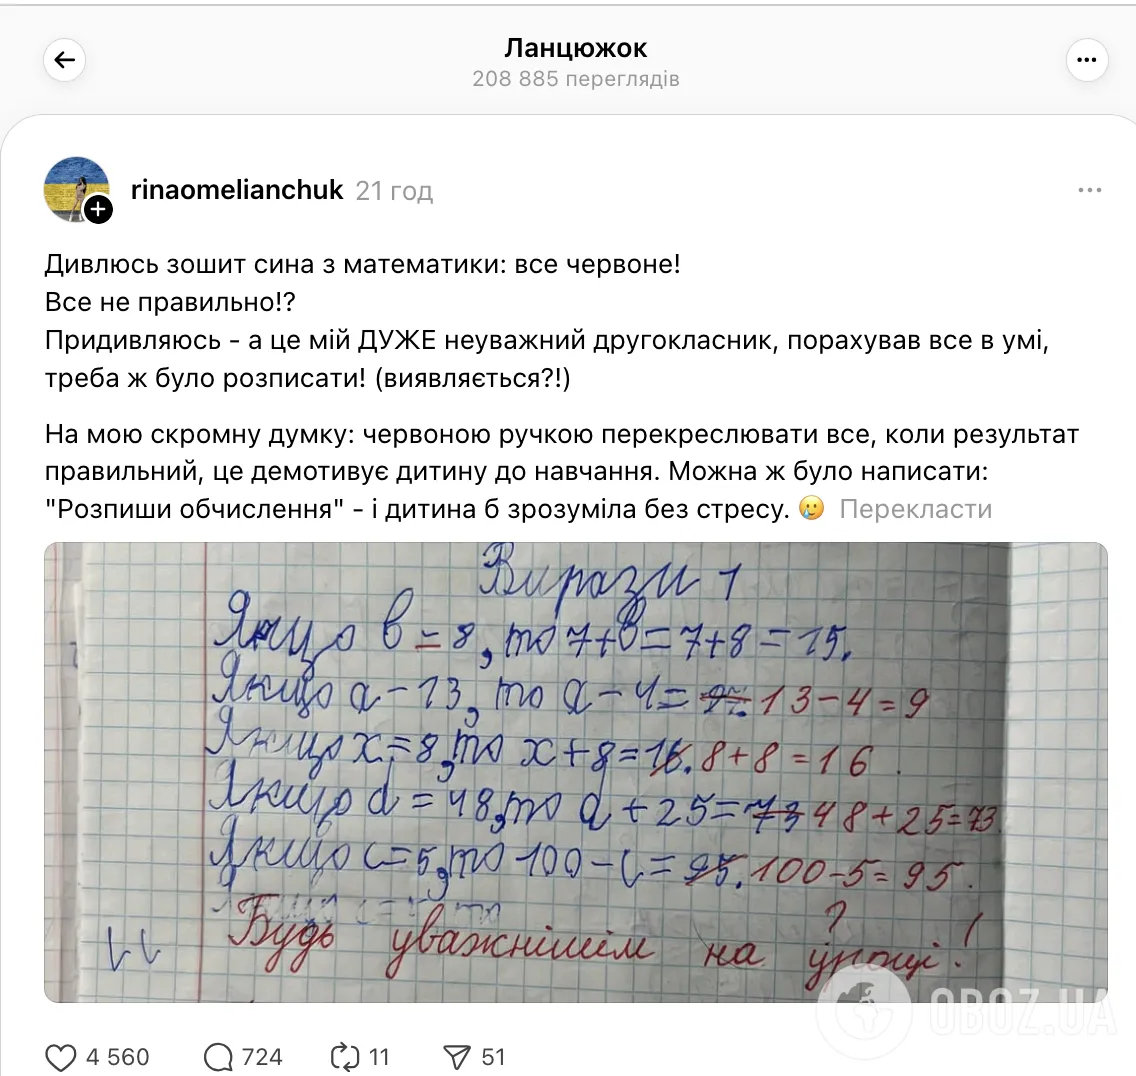 Ланцюжок
208 885 переглядів
rinaomelianchuk 21 год
Дивлюсь зошит сина з математики: все червоне!
Все не правильно!?
Придивляюсь - а це мій ДУЖЕ неуважний другокласник, порахував все в умі,
треба ж було розписати! (виявляється?!)
На мою скромну думку: червоною ручкою перекреслювати все, коли результат
правильний, це демотивує дитину до навчання. Можна ж було написати:
"Розпиши обчислення" - і дитина б зрозуміла без стресу. 🥲 Перекласти
Вирази 1
Якщо в = 8, то 7+в=7+8=15.
Якщо а-13, то а-4= 13-4=9
Якщо х=8, то х+8=16. 8+8=16.
Якщо d=48, то d+25=73 48+25=73.
Якщо с=5, то 100-с=95. 100-5=95.
Якщо с= то
Будь уважнішим на уроці!
OBOZ.UA
4 560 724 11 51